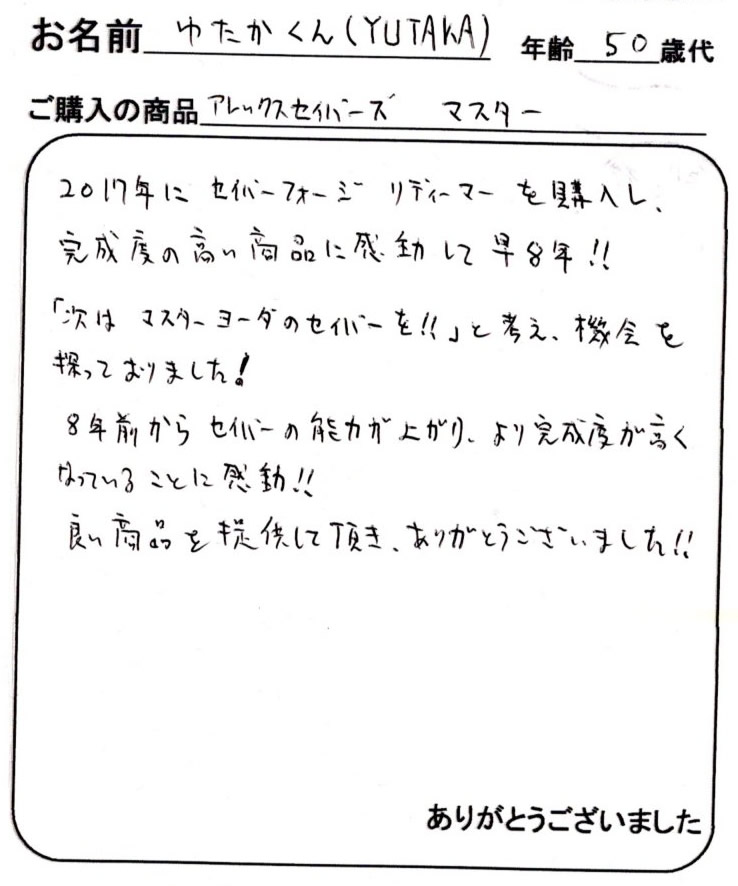 お名前 ゆたかくん(YUTAKA) 年齢 50 歳代
ご購入の商品 アレックスセイバーズ マスター
2017年に セイバーフォージ リディーマー を購入し、
完成度の高い商品に感動して早8年!!
「次は マスターヨーダのセイバーを!!」と考え、機会を
探っておりました!
8年前からセイバーの能力が上がり、より完成度が高く
なっていることに感動!!
良い商品を提供して頂き、ありがとうございました!!
ありがとうございました